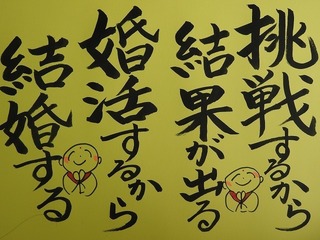 挑戦するから
結果が出る
婚活するから
結婚する